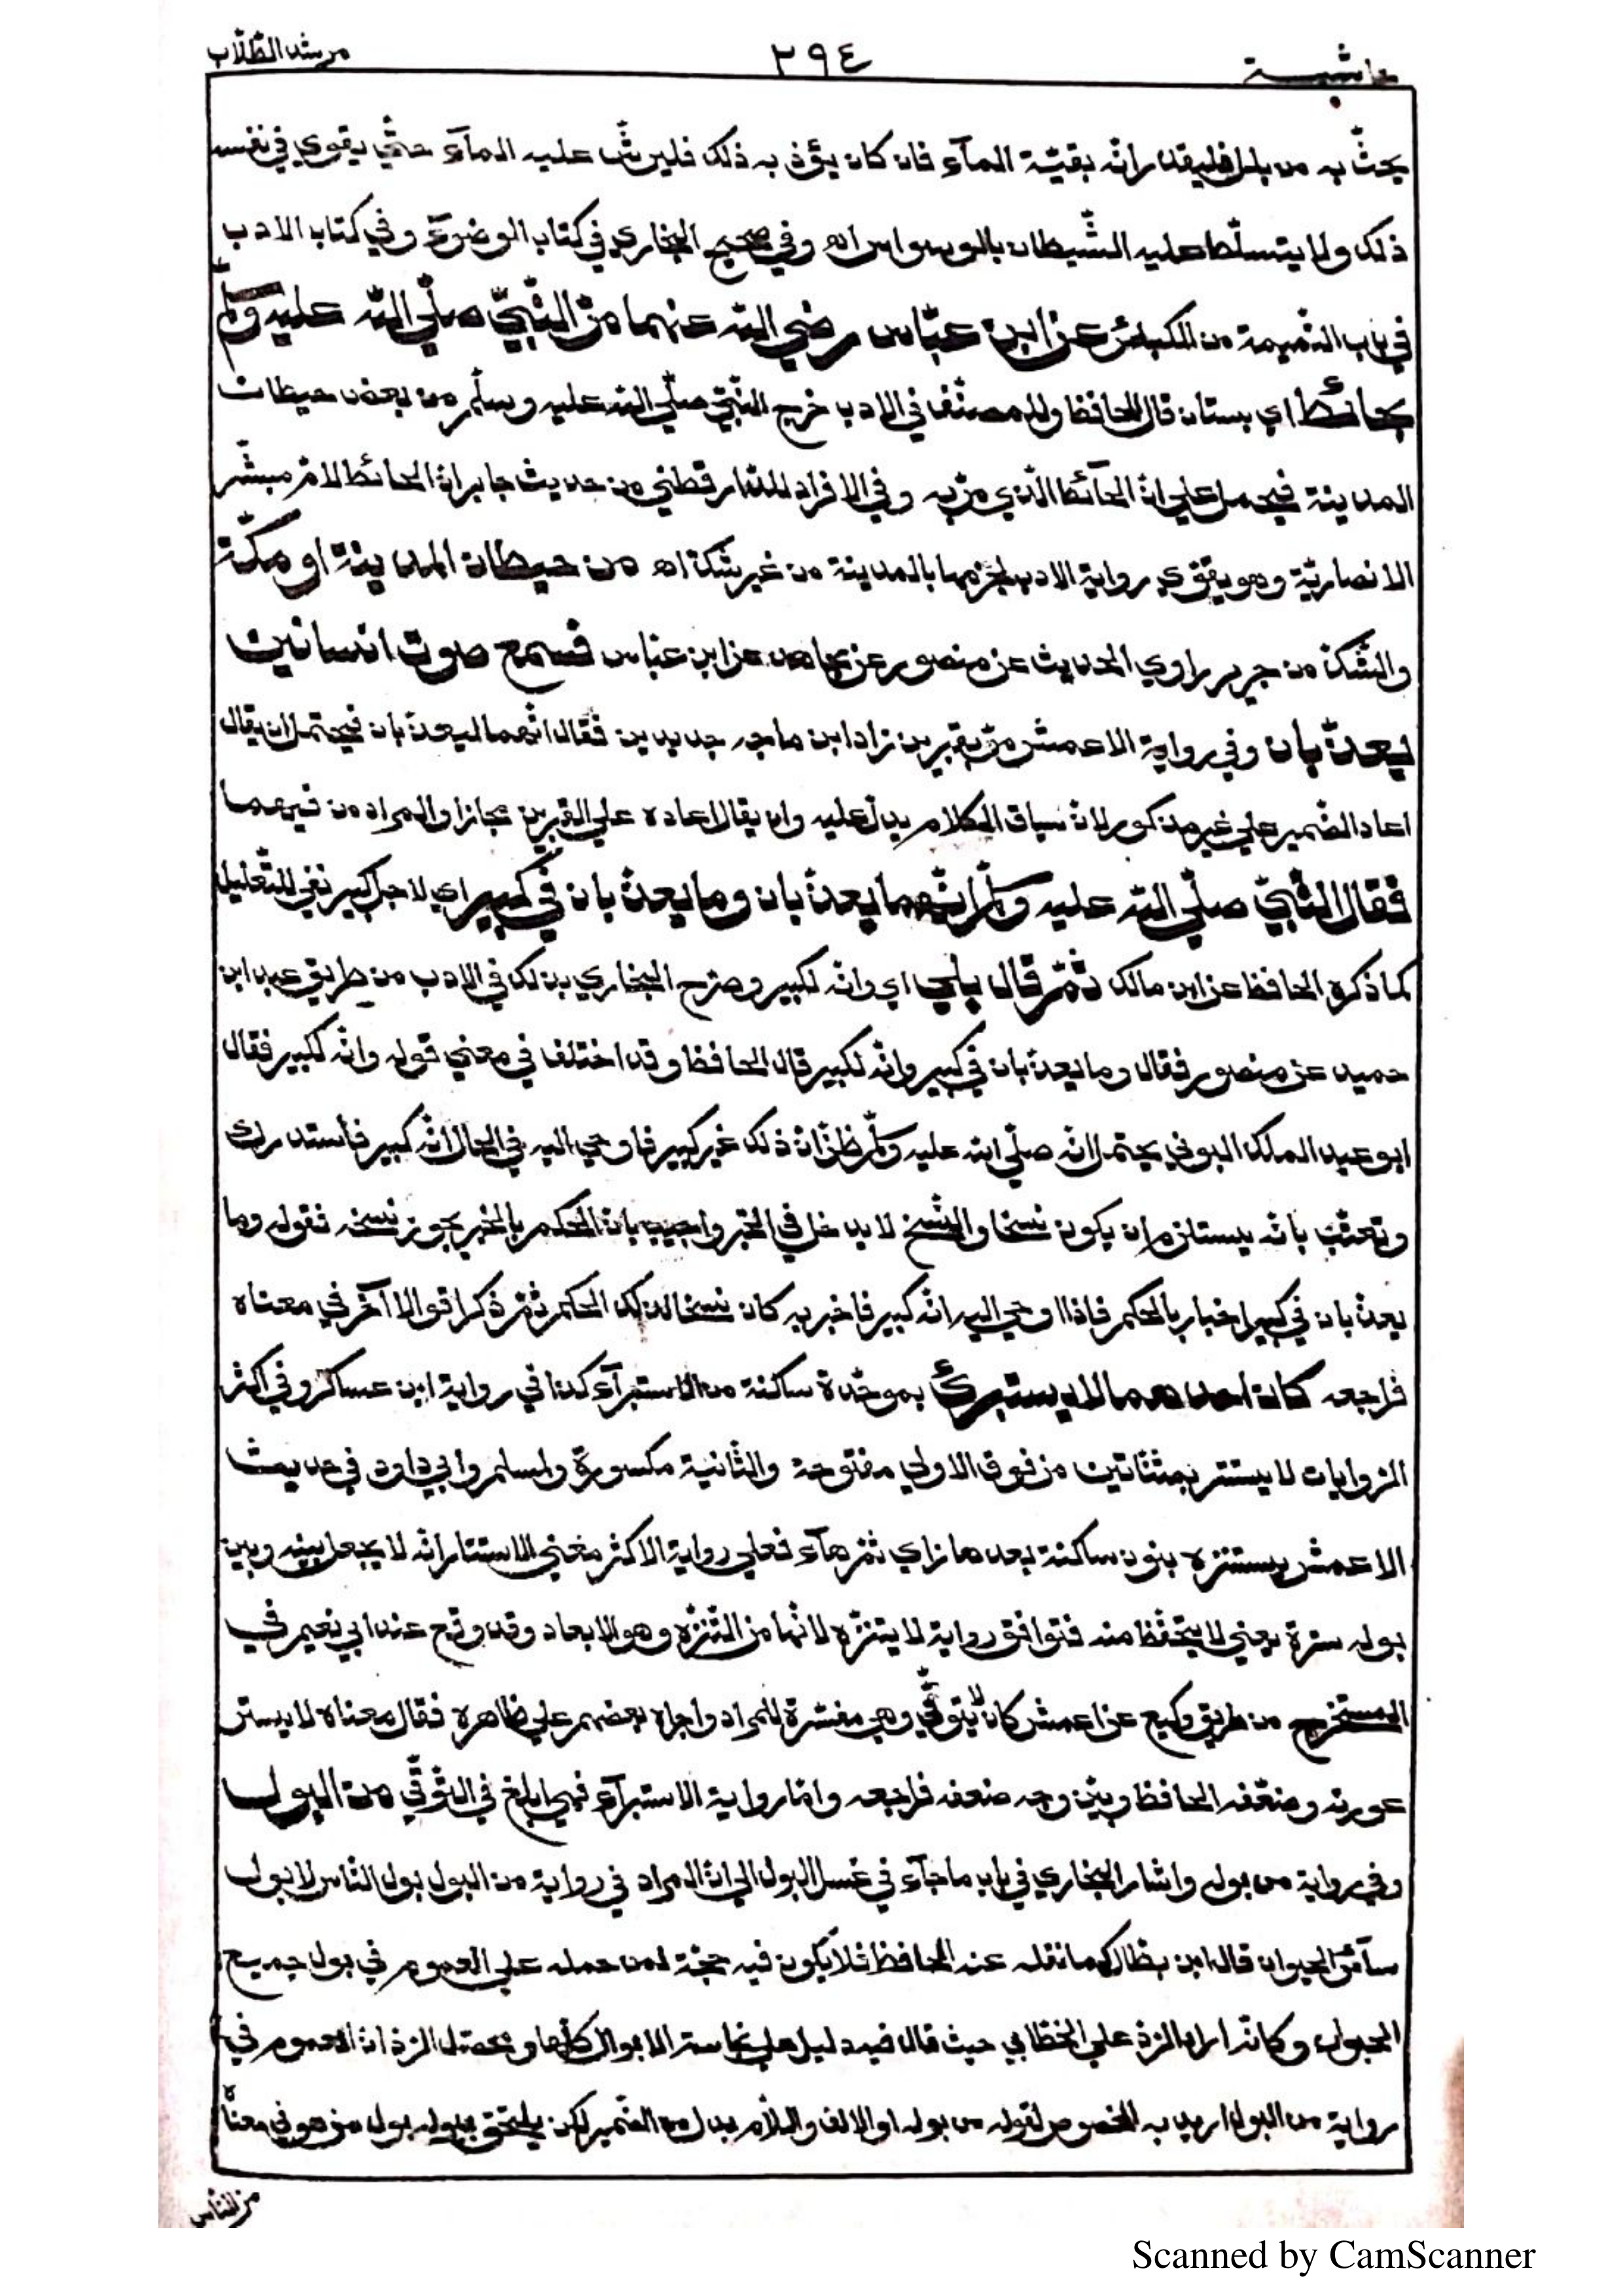 حاشية ٢٩٤ مرشد الطلّاب
يحثّ به من بلل فليقدر انّه بقيّة المآء فان كان يؤذ به ذلك فليرشّ عليه المآء حتّي يقوي في نفسه
ذلك ولا يتسلّط عليه الشّيطان بالوسواس اه وفي صحيح البخاري في كتاب الوضوء وفي كتاب الادب
في باب النّميمة من الكبائر عن ابن عبّاس رضي الله عنهما مرّ النّبيّ صلّي الله عليه وسلّم
بحائط اي بستان قال الحافظ وللمصنّف في الادب خرج النّبيّ صلّي الله عليه وسلّم من بعض حيطان
المدينة فيحمل علي انّ الحآئط الّذي مرّ به وفي الافراد للدّارقطني من حديث جابر انّ الحائط لامّ مبشّر
الانصاريّة وهو يقوّي رواية الادب لجزمها بالمدينة من غير شكّ اه من حيطان المدينة او مكّة
والشّكّ من جرير راوي الحديث عن منصور عن مجاهد عن ابن عبّاس فسمع صوت انسانين
يعذّبان وفي رواية الاعمش مرّ بقبرين زاد ابن ماجه جديدين فقال انّهما ليعذّبان فيحتمل ان يقال
اعاد الضّمير علي غير مذكور لانّ سياق الكلام يدلّ عليه وان يقال اعاده علي القبرين مجازا والمراد من فيهما
فقال النّبيّ صلّي الله عليه وسلّم انّهما يعذّبان وما يعذّبان في كبير اي لاجل كبير نفي للتّعليل
كما ذكره الحافظ عن ابن مالك ثمّ قال بلي اي وانّه لكبير وصرّح البخاري بذلك في الادب من طريق عبد ابن
حميد عن منصور فقال وما يعذّبان في كبير وانّه لكبير قال الحافظ وقد اختلف في معني قوله وانّه لكبير فقال
ابو عبد الملك البوني يحتمل انّه صلّي الله عليه وسلّم ظنّ انّ ذلك غير كبير فاوحي اليه في الحال انّه كبير فاستدرك
وتعقّب بانّه يستلزم ان يكون نسخا والنّسخ لا يدخل في الخبر واجيب بانّ الحكم بالخبر يجوز نسخه فقوله وما
يعذّبان في كبير اخبار بالحكم فاذا اوحي اليه انّه كبير فاخبر به كان نسخا لذلك الحكم ثمّ ذكر اقوالا آخر في معناه
فراجعه كان احدهما لا يستبرئ بموحّدة ساكنة من الاستبرآء كذا في رواية ابن عساكر وفي اكثر
الرّوايات لا يستتر بمثنّاتين من فوق الاولي مفتوحة والثّانية مكسورة ولمسلم وابي داود في حديث
الاعمش يستنزه بنون ساكنة بعدها زاي ثمّ هآء فعلي رواية الاكثر معني الاستتار انّه لا يجعل بينه وبين
بوله سترة يعني لا يتحفّظ منه فتوافق رواية لا يتنزّه لانّها من التّنزّه وهو الابعاد وقد وقع عند ابي نعيم في
المستخرج من طريق وكيع عن اعمش كان لا يتوقّي وهي مفسّرة للمراد واجراه بعضهم علي ظاهره فقال معناه لا يستر
عورته وضعّفه الحافظ وبيّن وجه ضعفه فراجعه وامّا رواية الاستبرآء فهي ابلغ في التّوقّي من البول
وفي رواية من بوله واشار البخاري في باب ما جآء في غسل البول الي انّ المراد في رواية من البول بول النّاس لا بول
سآئر الحيوان قال ابن بطّال كما نقله عنه الحافظ فلا يكون فيه حجّة لمن حمله علي العموم في بول جميع
الحيوان وكانّه اراد الرّدّ علي الخطّابي حيث قال فيه دليل علي نجاسة الابوال كلّها ومحصّل الرّدّ انّ العموم في
رواية من البول اريد به الخصوص لقوله من بوله او الالف واللّام بدل من الضّمير لكن يلتحق ببوله بول من هو في معناه
من النّاس
Scanned by CamScanner